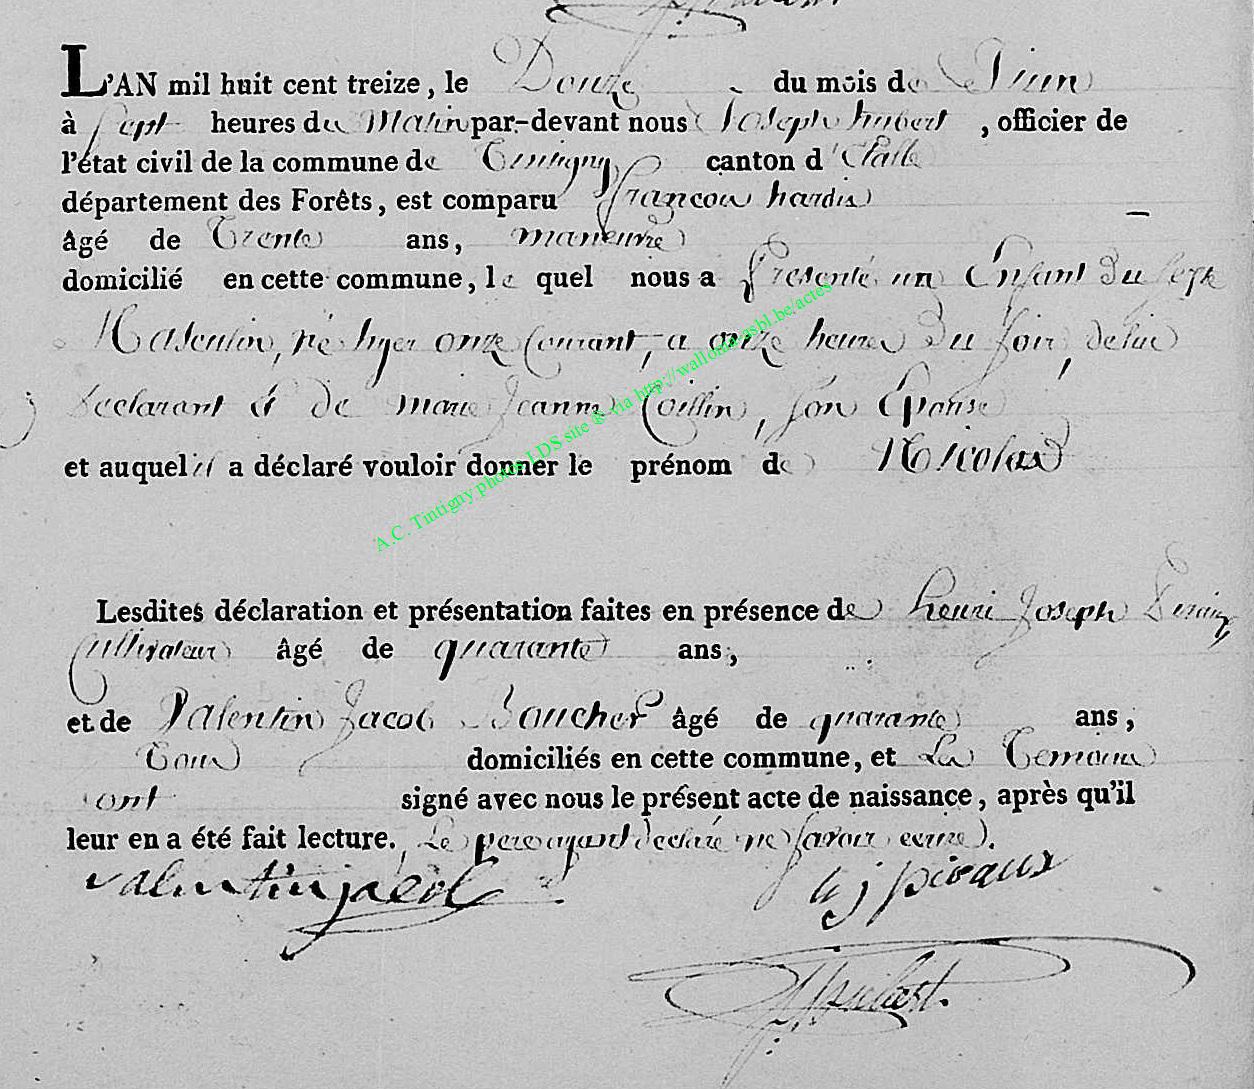 L'AN mil huit cent treize, le Douze du mois de Juin
à sept heures du Matin par-devant nous Joseph hubert, officier de
l'état civil de la commune de Tintigny canton d'Etalle
département des Forêts, est comparu françois hardis
âgé de Trente ans, maneuvre
domicilié en cette commune, le quel nous a Presenté un Enfant Du sexe
Masculin, né hyer onze Courant, a onze heures Du soir, de lui
Declarant & de marie Jeanne son Epouse
et auquel il a déclaré vouloir donner le prénom de Nicolas
A.C. Tintigny photos LDS site ® via http://wallonia-asbl.be/actes
Lesdites déclaration et présentation faites en présence de henri Joseph
Cultivateur âgé de quarante ans,
et de Valentin Jacob Boucher âgé de quarante ans,
Tous domiciliés en cette commune, et Les Temoins
ont signé avec nous le présent acte de naissance, après qu'il
leur en a été fait lecture. Le pere ayant declaré ne savoir ecrire.
valentin jacob h j piraux
Hubert.